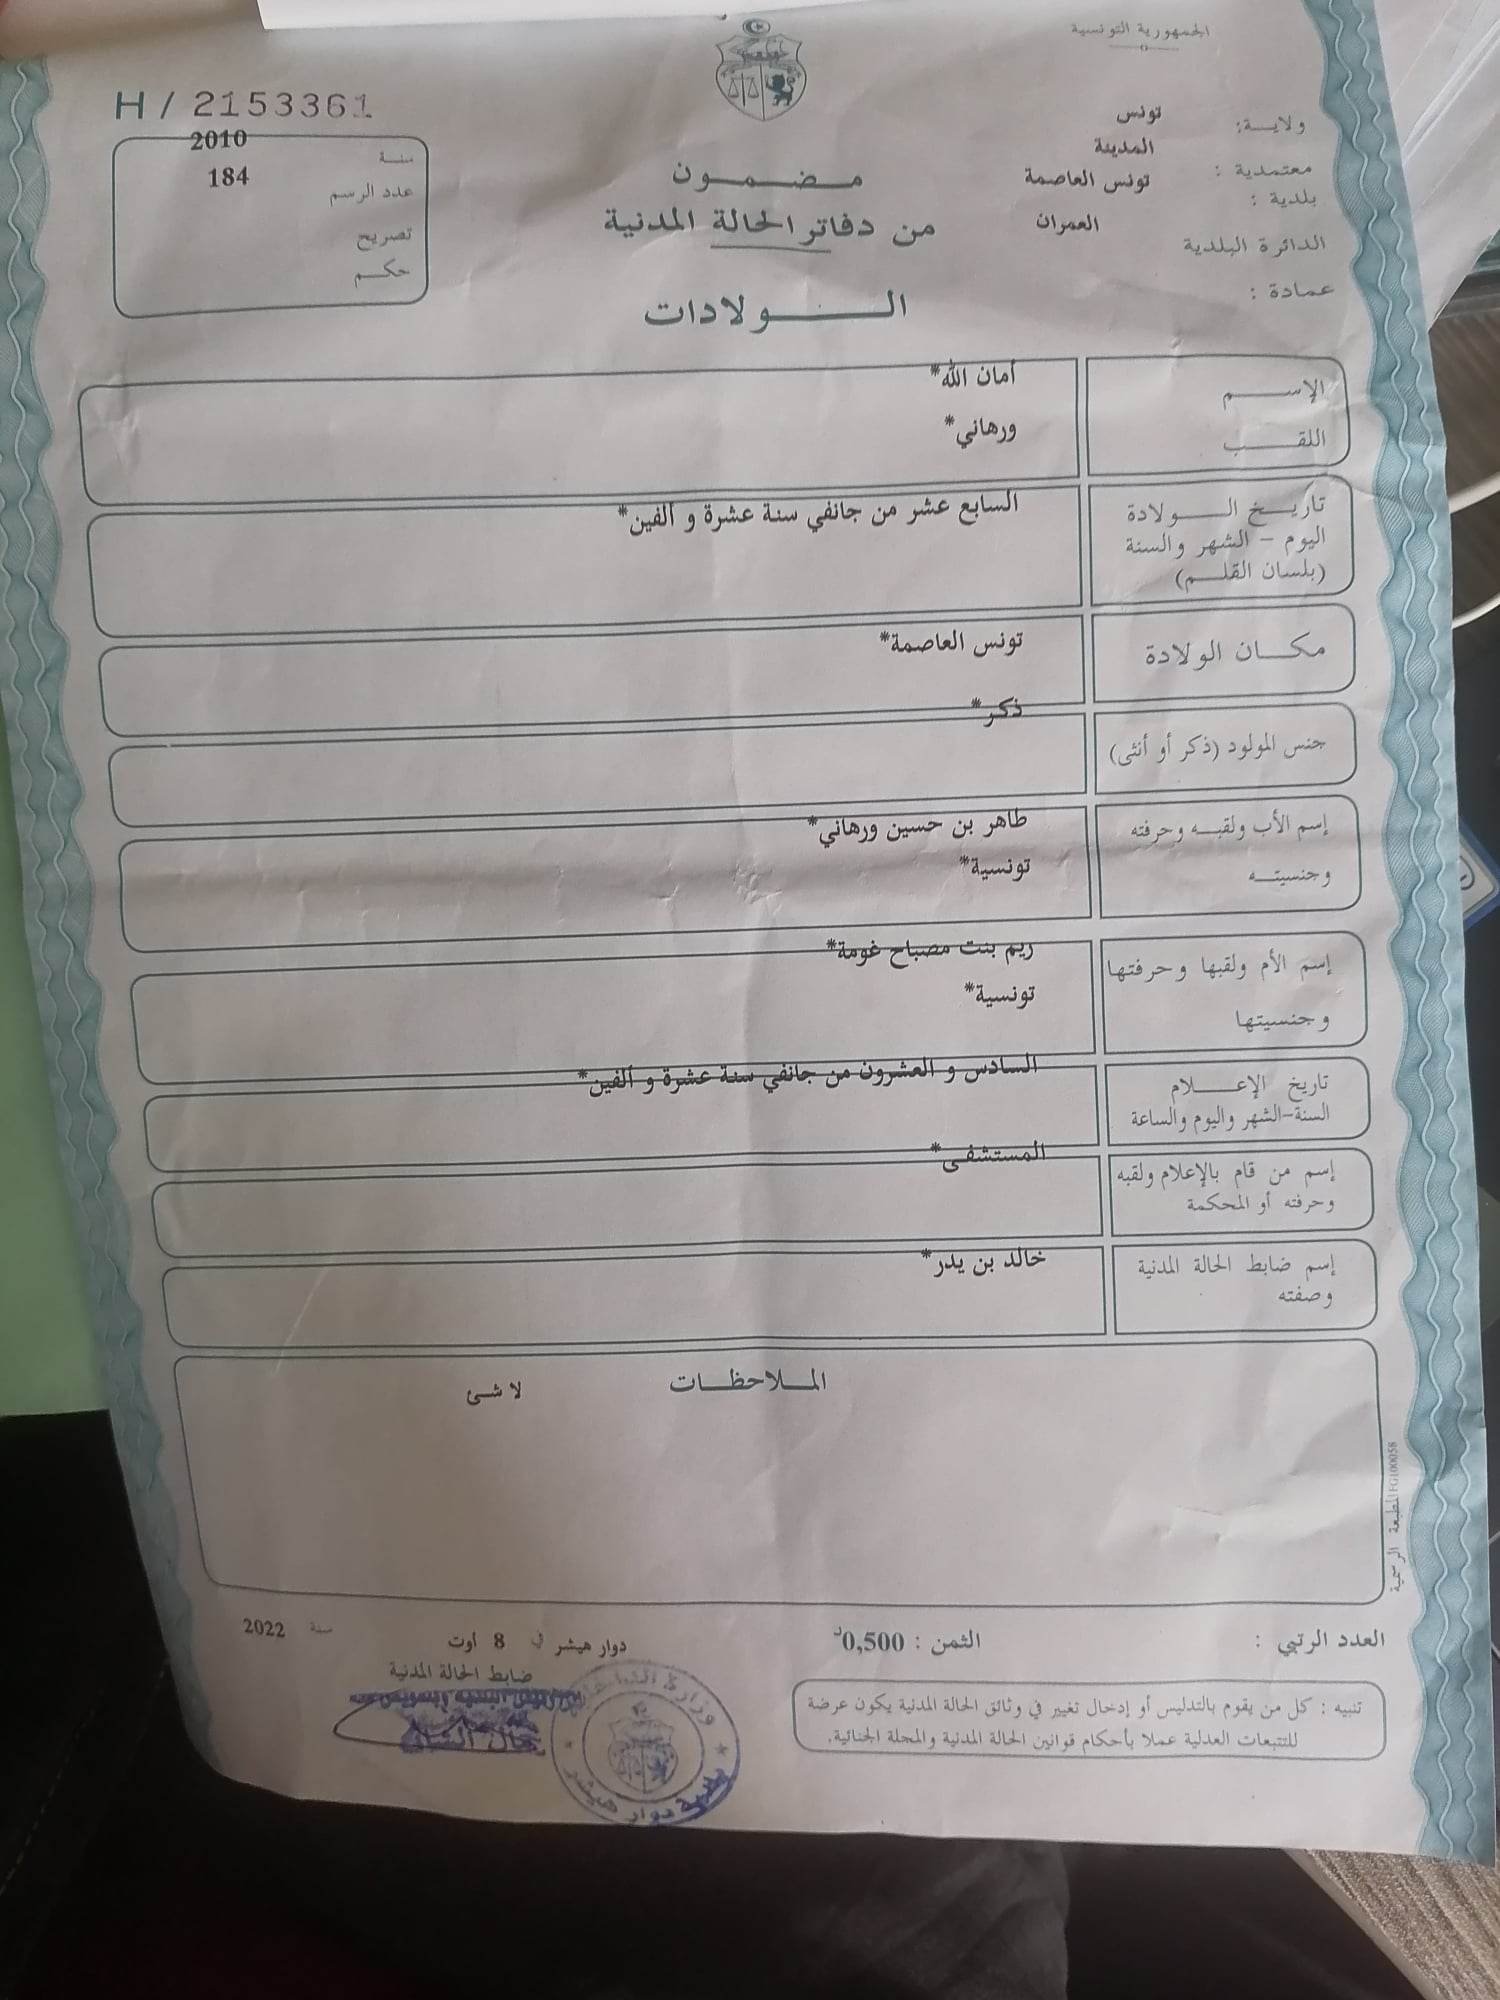 الجمهورية التونسية
ولاية: تونس
معتمدية : المدينة
بلدية : تونس العاصمة
الدائرة البلدية العمران
عمادة :
H / 2153361
سنة 2010
عدد الرسم 184
تصريح
حكم
مضمون
من دفاتر الحالة المدنية
الولادات
الإسم أمان الله*
اللقب ورهاني*
تاريخ الولادة السابع عشر من جانفي سنة عشرة و ألفين*
اليوم - الشهر والسنة
(بلسان القلم)
مكان الولادة تونس العاصمة*
جنس المولود (ذكر أو أنثى) ذكر*
إسم الأب ولقبه وحرفته طاهر بن حسين ورهاني*
وجنسيته تونسية*
إسم الأم ولقبها وحرفتها ريم بنت مصباح غومة*
وجنسيتها تونسية*
تاريخ الإعلام السادس و العشرون من جانفي سنة عشرة و ألفين*
السنة-الشهر واليوم والساعة
إسم من قام بالإعلام ولقبه المستشفى*
وحرفته أو المحكمة
إسم ضابط الحالة المدنية خالد بن يدر*
وصفته
الملاحظات لا شئ
المطبعة الرسمية FG100058
العدد الرتبي : الثمن : 0,500د
دوار هيشر في 8 أوت سنة 2022
ضابط الحالة المدنية
تنبيه : كل من يقوم بالتدليس أو إدخال تغيير في وثائق الحالة المدنية يكون عرضة
للتتبعات العدلية عملا بأحكام قوانين الحالة المدنية والمجلة الجنائية.
بلدية دوار هيشر